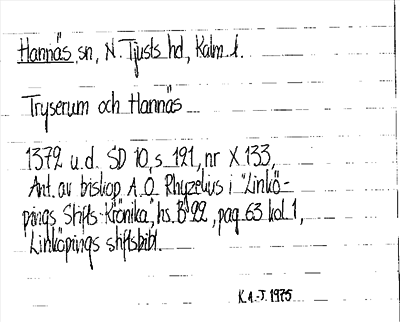 Hannäs sn, N. Tjusts hd, Kalm. l.
Tryserum och Hannäs
1372 u.d. SD 10, s 191, nr X 133,
Ant. av biskop A. O. Rhyzelius i "Linkö-
pings Stifts-Krönika", hs. B 22, pag. 63 kol. 1,
Linköpings stiftsbibl.
K.A.-J. 1975